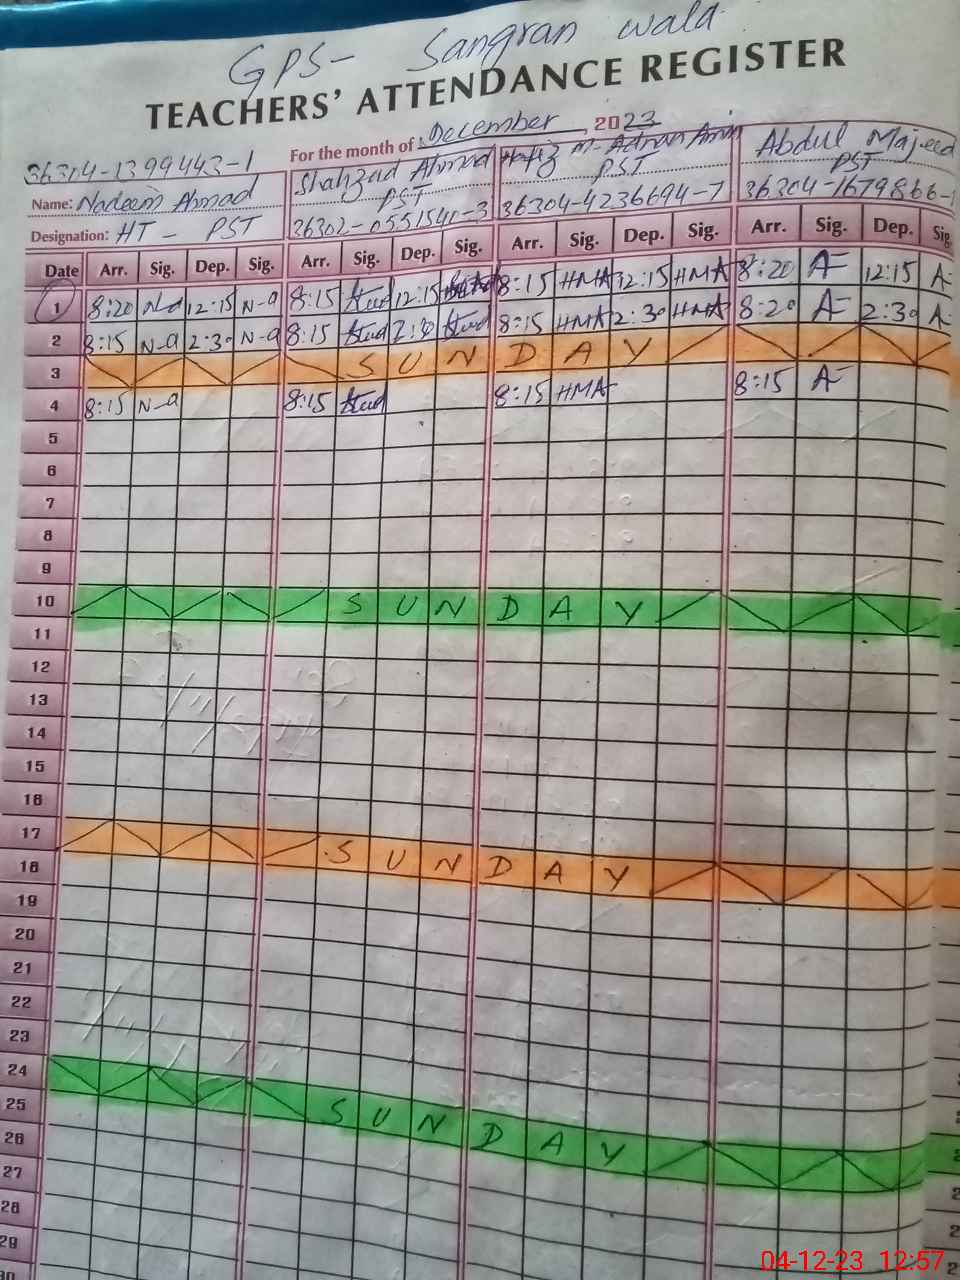 GPS- Sangran wala
TEACHERS' ATTENDANCE REGISTER
For the month of December, 2023
36304-1399443-1 Shahzad Ahmad Hafiz M-Adnan Amin Abdul Majeed
Name: Nadeem Ahmad PST PST PST
Designation: HT - PST 36302-0551541-3 36304-4236694-7 36304-1679866-
Date Arr. Sig. Dep. Sig. Arr. Sig. Dep. Sig. Arr. Sig. Dep. Sig. Arr. Sig. Dep. Sig.
1 8:20 N-a 12:15 N-a 8:15 12:15 8:15 HMA 12:15 HMA 8:20 A 12:15 A
2 8:15 N-a 2:30 N-a 8:15 2:30 8:15 HMA 2:30 HMA 8:20 A 2:30 A
3 SUNDAY
4 8:15 N-a 8:15 8:15 HMA 8:15 A
5
6
7
8
9
10 SUNDAY
11
12
13
14
15
16
17 SUNDAY
18
19
20
21
22
23
24 SUNDAY
25
26
27
28
29
30
04-12-23 12:57